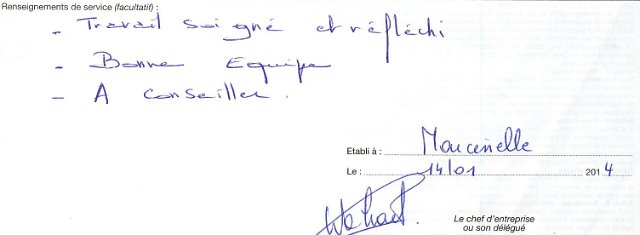 Renseignements de service (facultatif) :
- Travail soigné et réfléchi
- Bonne Equipe
- A conseiller.
Etabli à : Marcinelle
Le : 14/01 2014
Le chef d'entreprise
ou son délégué